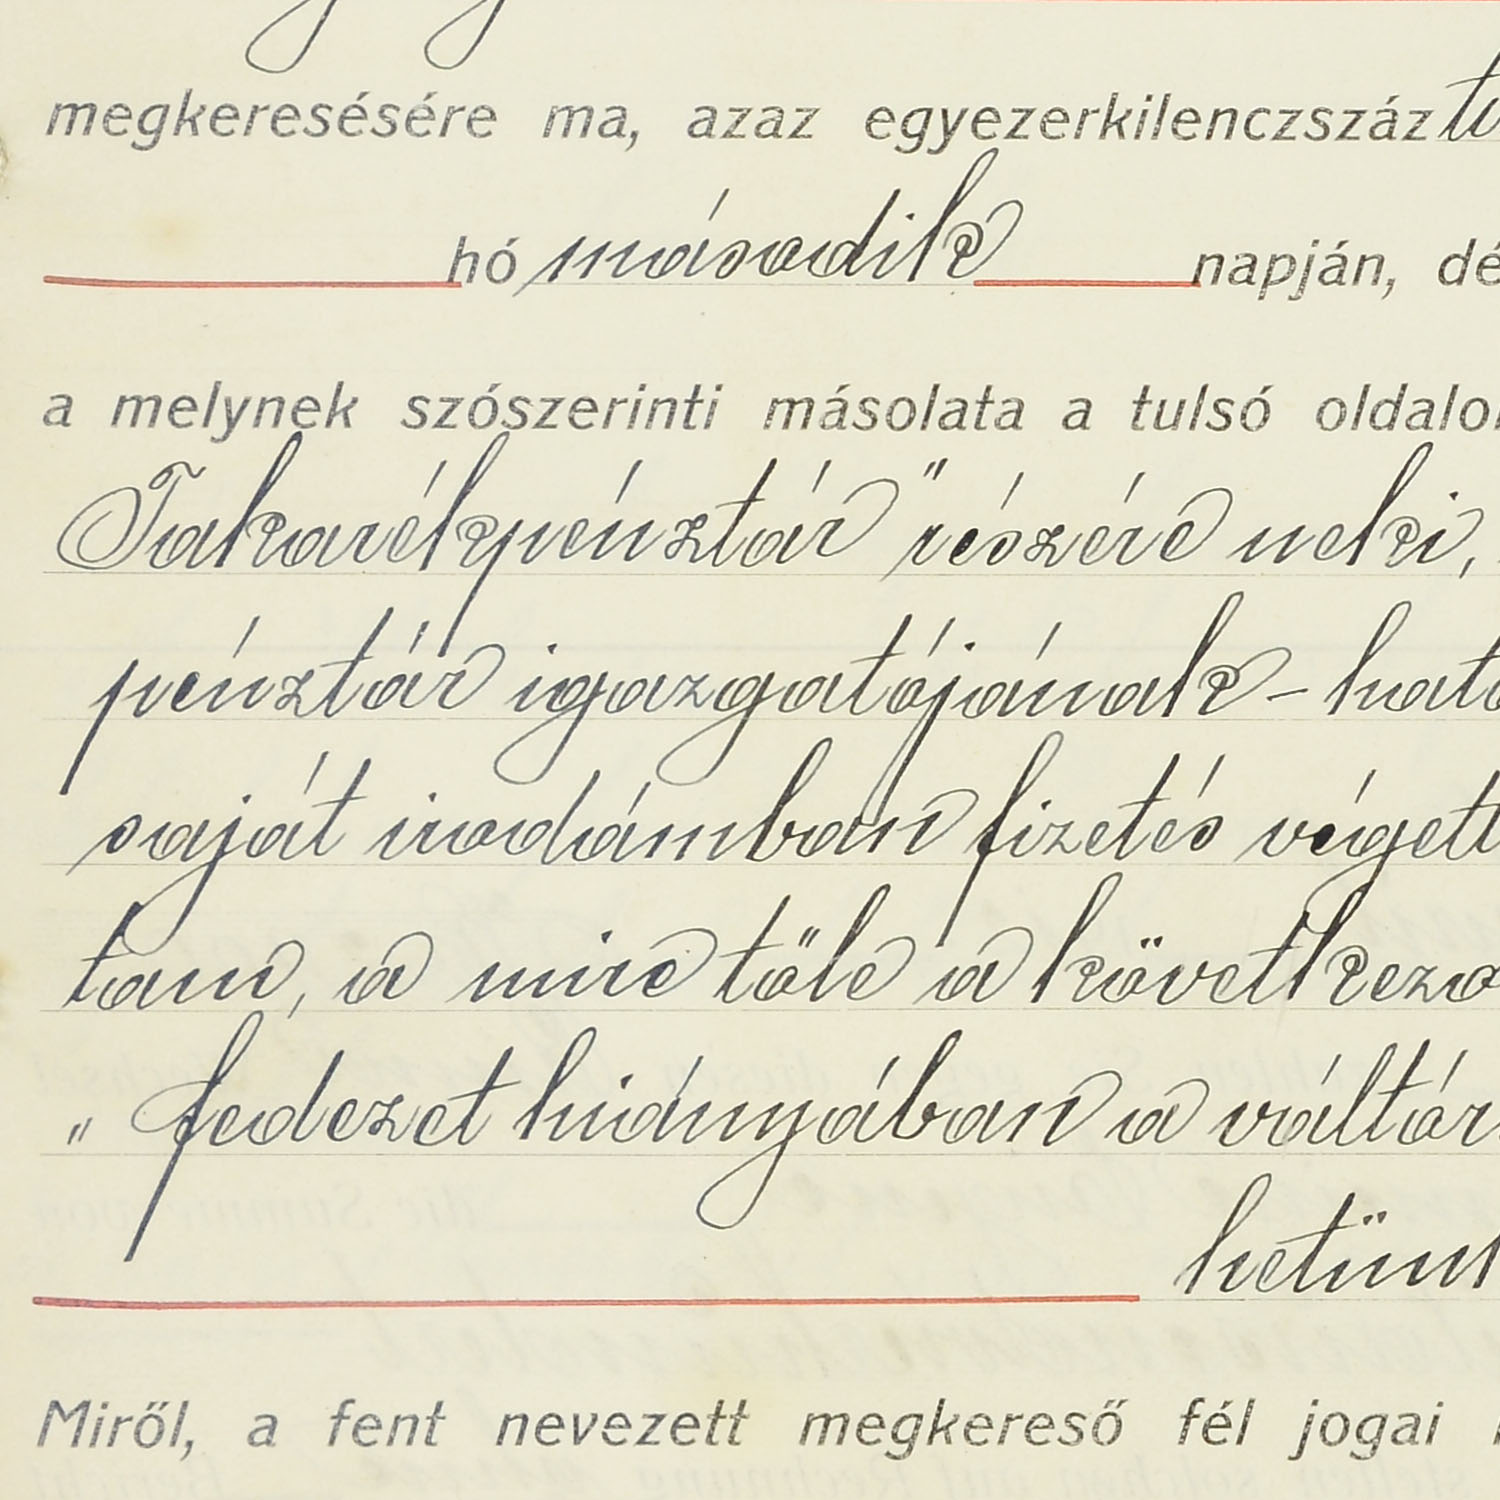 megkeresésére ma, azaz egyezerkilenczszáz
hó második napján, dé
a melynek szószerinti másolata a tulsó oldalon
Takarékpénztár" részére neki,
pénztár igazgatójának - hatá
saját irodámban fizetés végett
tam, a mire tőle a következő
" fedezet hiányában a váltár
hetünk
Miről, a fent nevezett megkereső fél jogai